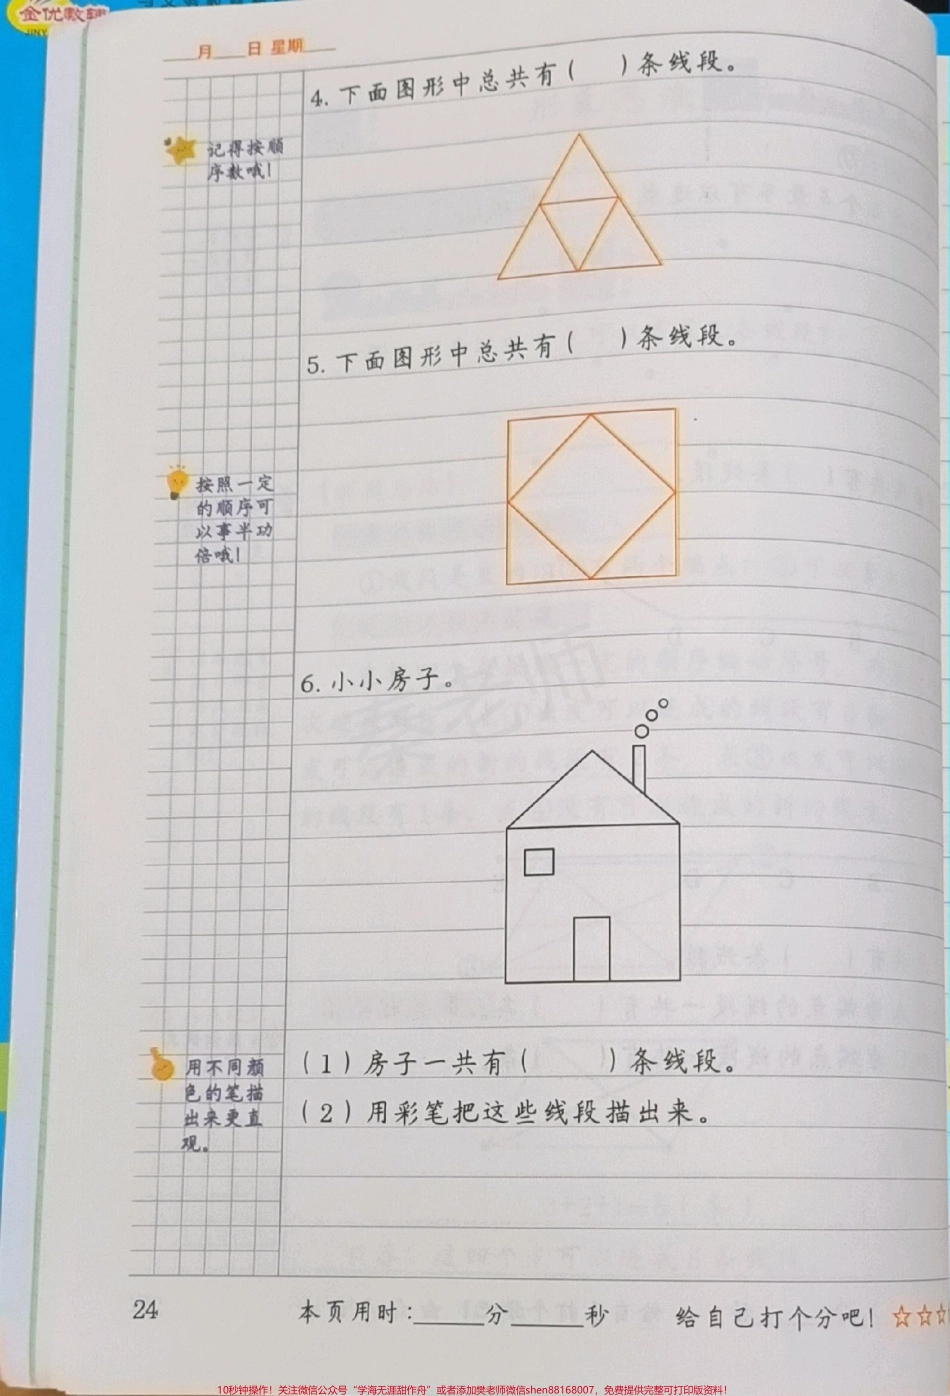 金优教辅
月 日 星期
4. 下面图形中总共有( )条线段。
记得按顺
序数哦!
5. 下面图形中总共有( )条线段。
按照一定
的顺序可
以事半功
倍哦!
6. 小小房子。
(1)房子一共有( )条线段。
用不同颜
色的笔描
出来更直
观。
(2)用彩笔把这些线段描出来。
24
本页用时:____分____秒
给自己打个分吧! ☆☆☆
10秒钟操作!关注微信公众号“学海无涯甜作舟”或者添加樊老师微信shen88168007,免费提供完整可打印版资料!